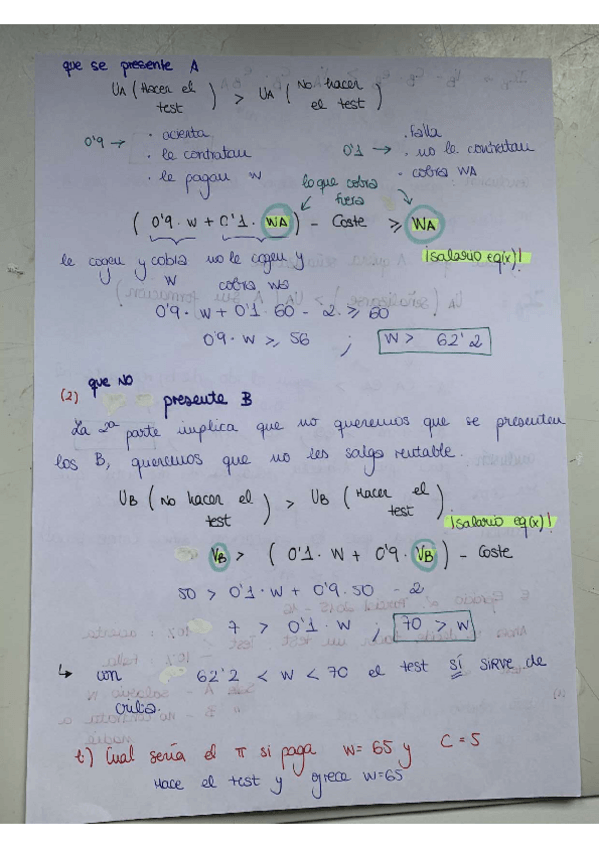 que se presente A
UA (Hacer el test) > UA (No hacer el test)
0'9 → · acierta
· le contratan
· le pagan w
0'1 → · falla
· no le contratan
· cobra WA
lo que cobra fuera
(0'9 · w + 0'1 · WA) - Coste ≥ WA
le cogen y cobra w
no le cogen y cobra WG
¡salario eq(x)!
0'9 · w + 0'1 · 60 - 2 ≥ 60
0'9 · w ≥ 56 ; w > 62'2
(2) que NO presente B
La 2ª parte implica que no queremos que se presenten
los B, queremos que no les salga rentable.
UB (No hacer el test) > UB (Hacer el test)
¡salario eq(x)!
VB > (0'1 · w + 0'9 · VB) - Coste
50 > 0'1 · w + 0'9 · 50 - 2
7 > 0'1 · w ; 70 > w
↳ con 62'2 < w < 70 el test sí sirve de
criba.
b) Cual sería el π si paga w = 65 y C = 5
Hace el test y ofrece w=65